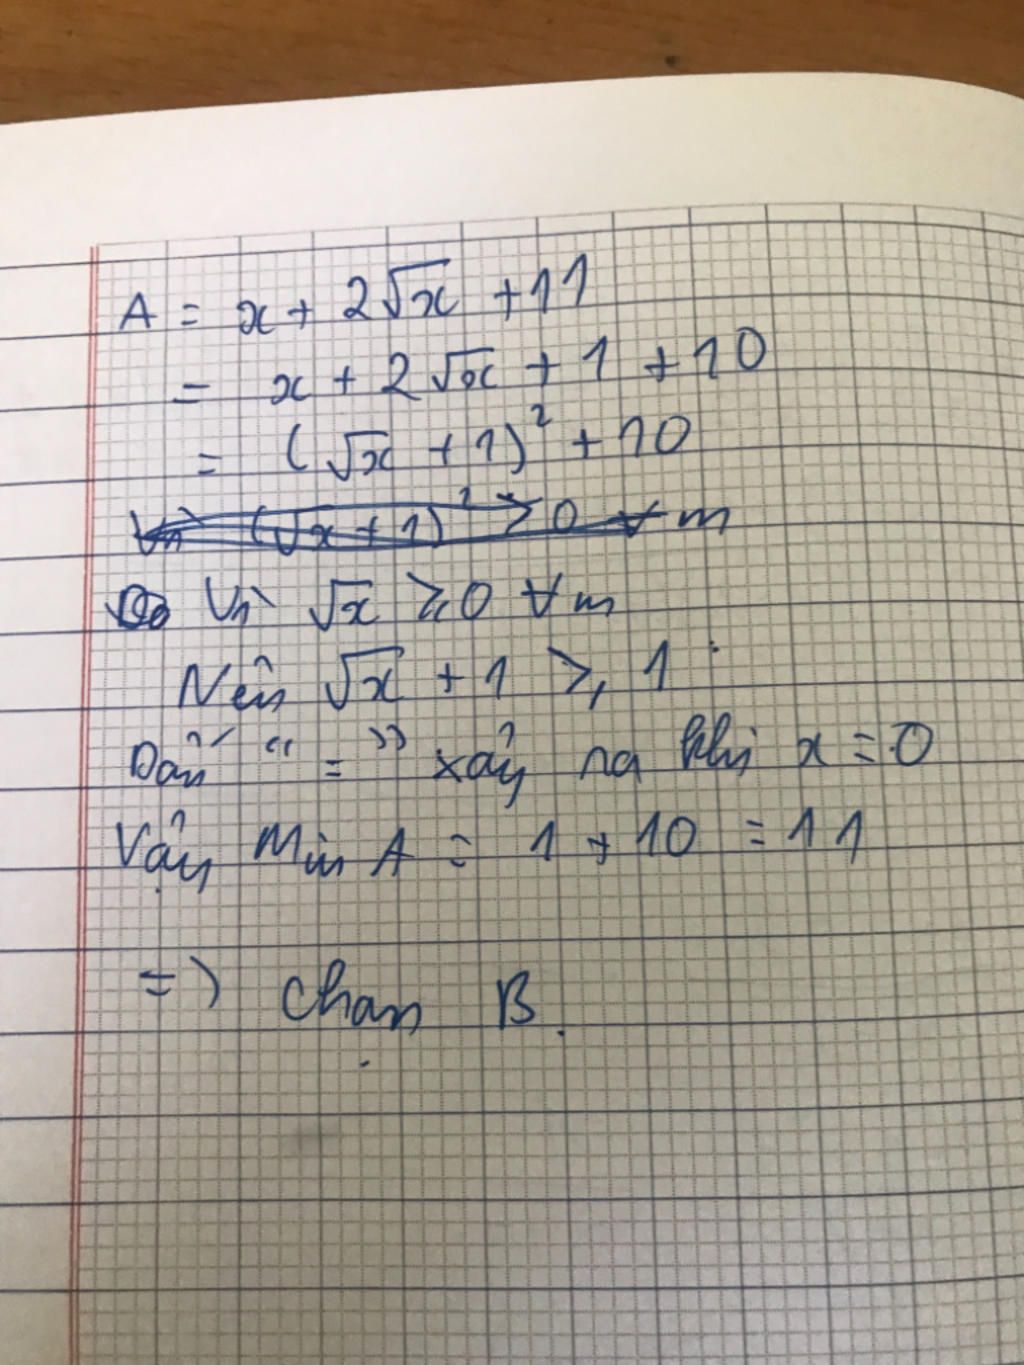 A = x + 2√x + 11
= x + 2√x + 1 + 10
= (√x + 1)² + 10
Vì (√x + 1)² ≥ 0 ∀ m
Vì √x ≥ 0 ∀ m
Nên √x + 1 ≥ 1
Dấu " = " xảy ra khi x = 0
Vậy Min A = 1 + 10 = 11
=> Chọn B.